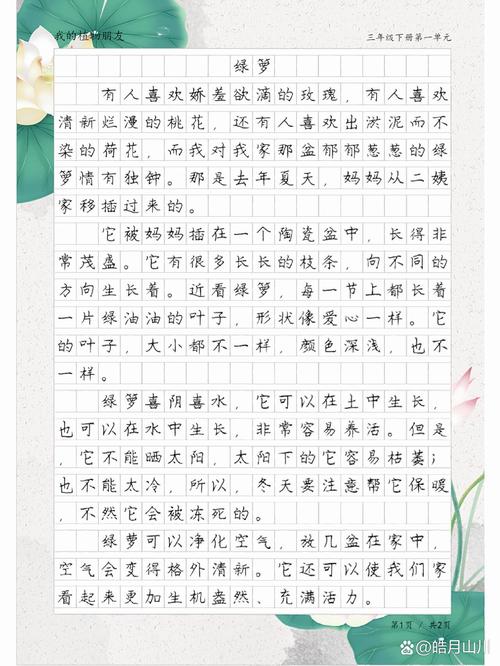 我的植物朋友
三年级下册第一单元
绿萝
有人喜欢娇羞欲滴的玫瑰，有人喜欢
清新烂漫的桃花，还有人喜欢出洪泥而不
染的荷花，而我对我家那盆郁郁葱葱的绿
箩情有独钟。那是去年夏天，妈妈从二姨
家移插过来的。
它被妈妈插在一个陶瓷盆中，长得非
常茂盛。它有很多长长的枝条，向不同的
方向生长着。近看绿箩，每一节上都长着
一片绿油油的叶子，形状像爱心一样。它
的叶子，大小都不一样，颜色深浅，也不
一样。
绿箩喜阴喜水，它可以在土中生长，
也可以在水中生长，非常容易养活。但是
，它不能晒太阳，太阳下的它容易枯萎；
也不能太冷，所以，冬天要注意帮它保暖
，不然它会被冻死的。
绿萝可以净化空气，放几盆在家中，
空气会变得格外清新。它还可以使我们家
看起来更加生机盎然、充满活力。
第1页 / 共2页
Bai 百度 @皓月山川